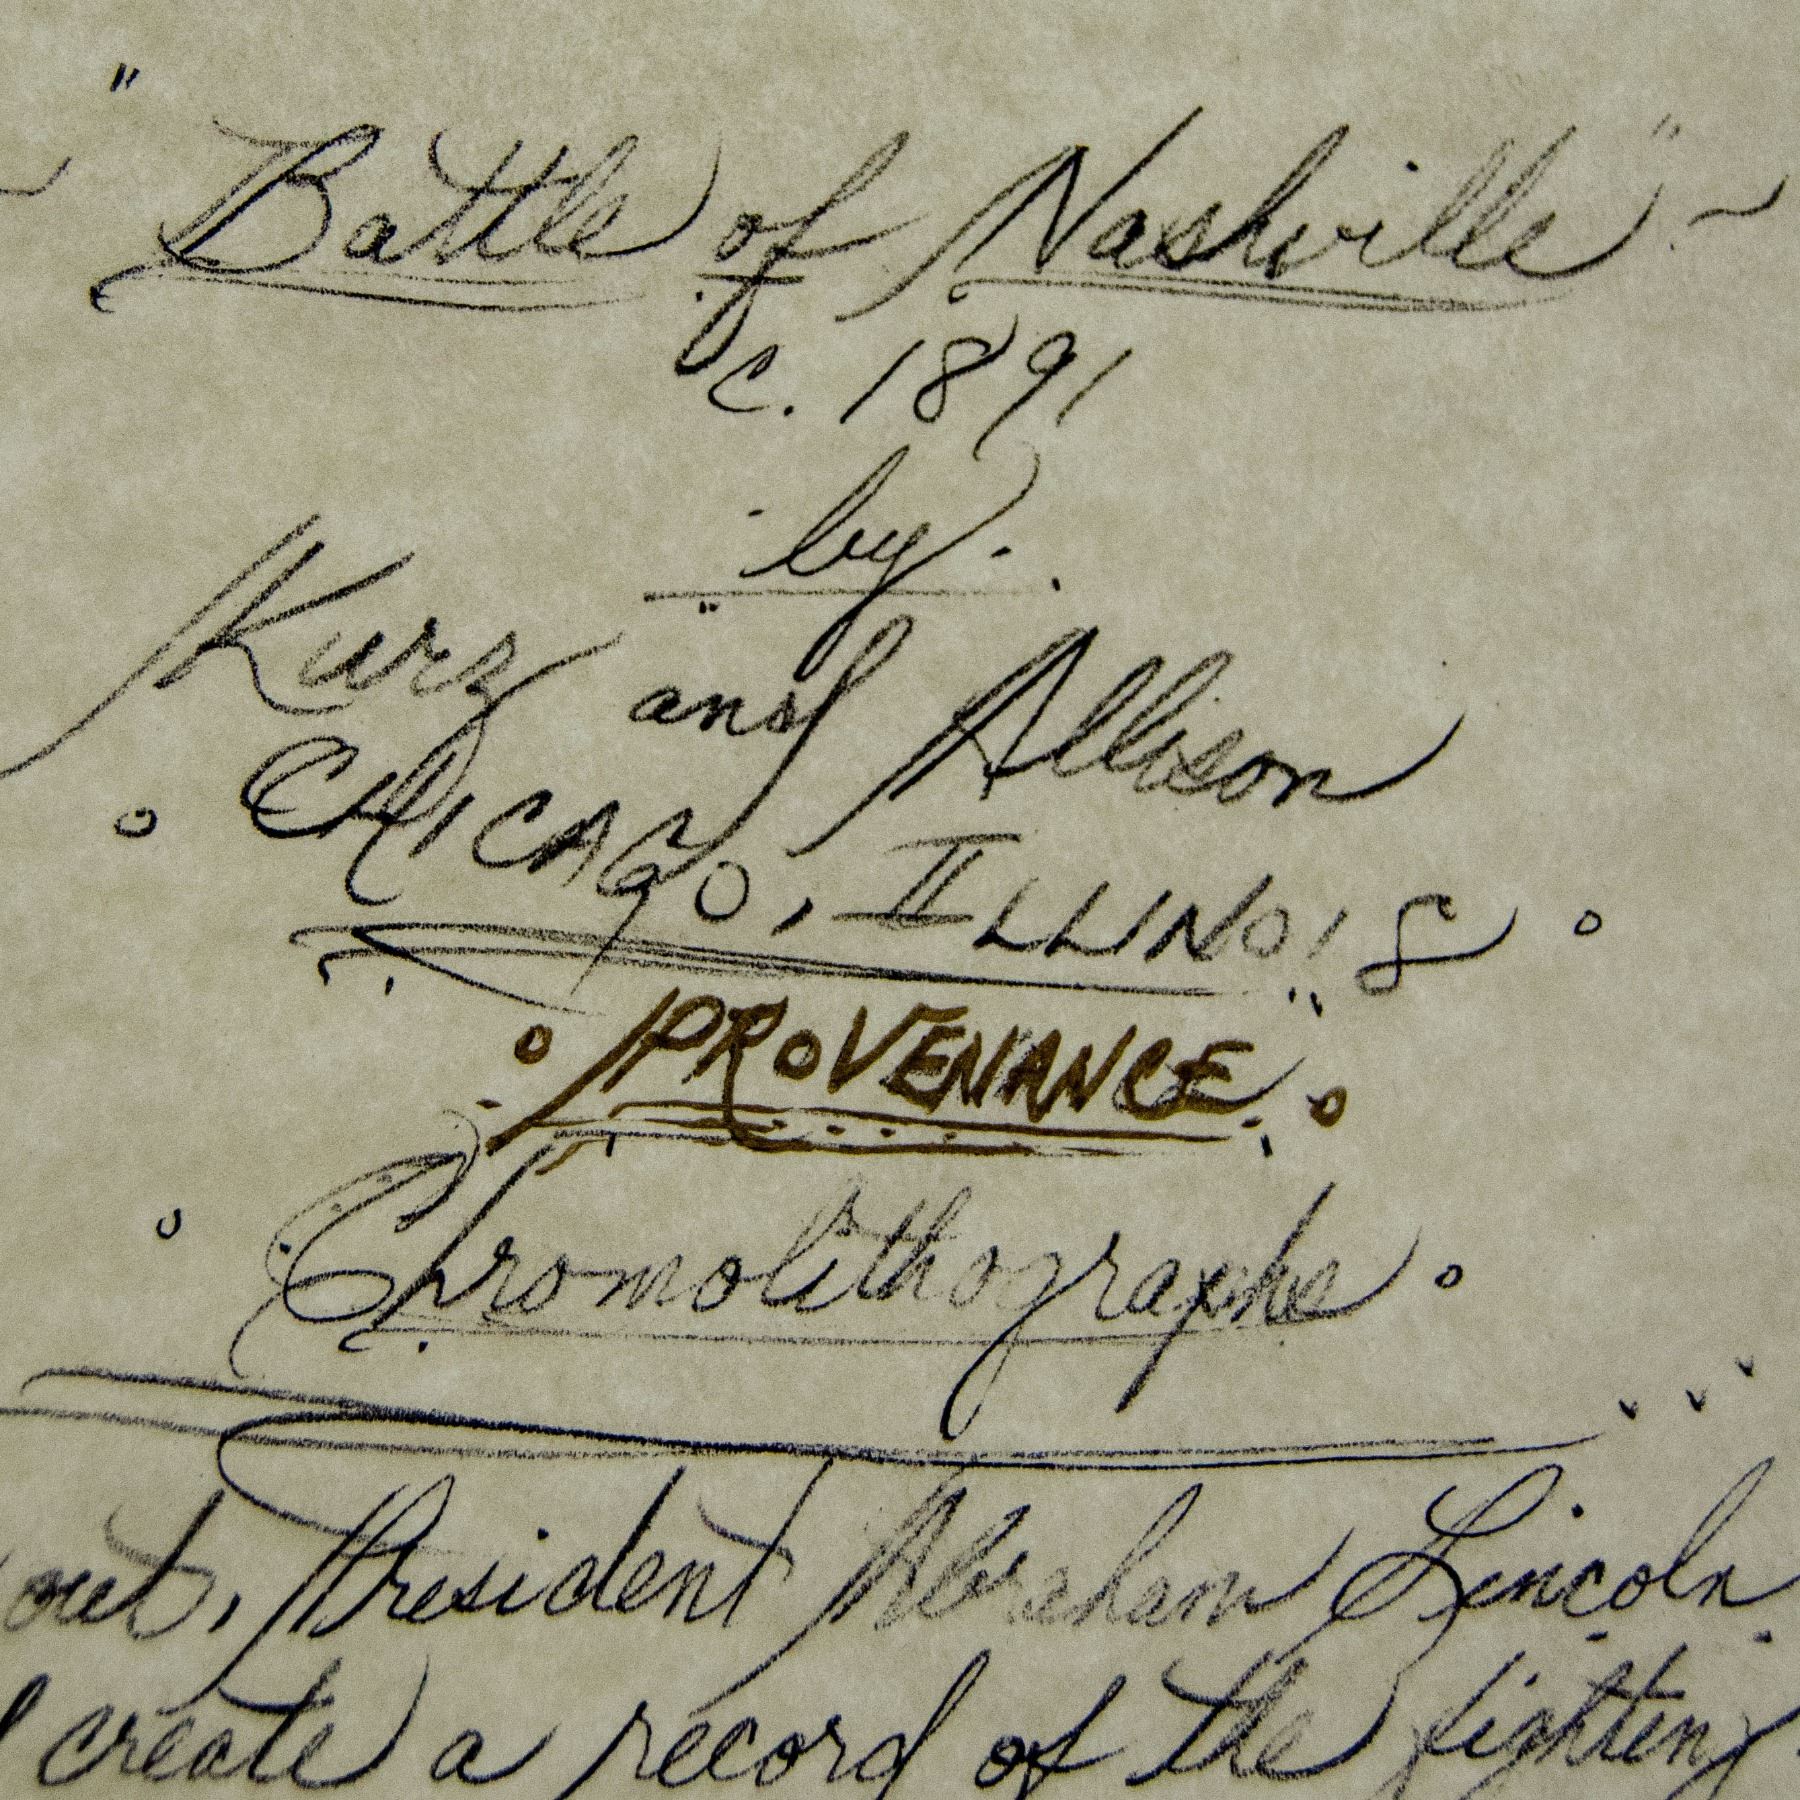 ~ "Battle of Nashville" ~
c. 1891
by
Kurz and Allison
CHICAGO, ILLINOIS
PROVENANCE
Chromolithographs
out, President Abraham Lincoln
create a record of the fighting